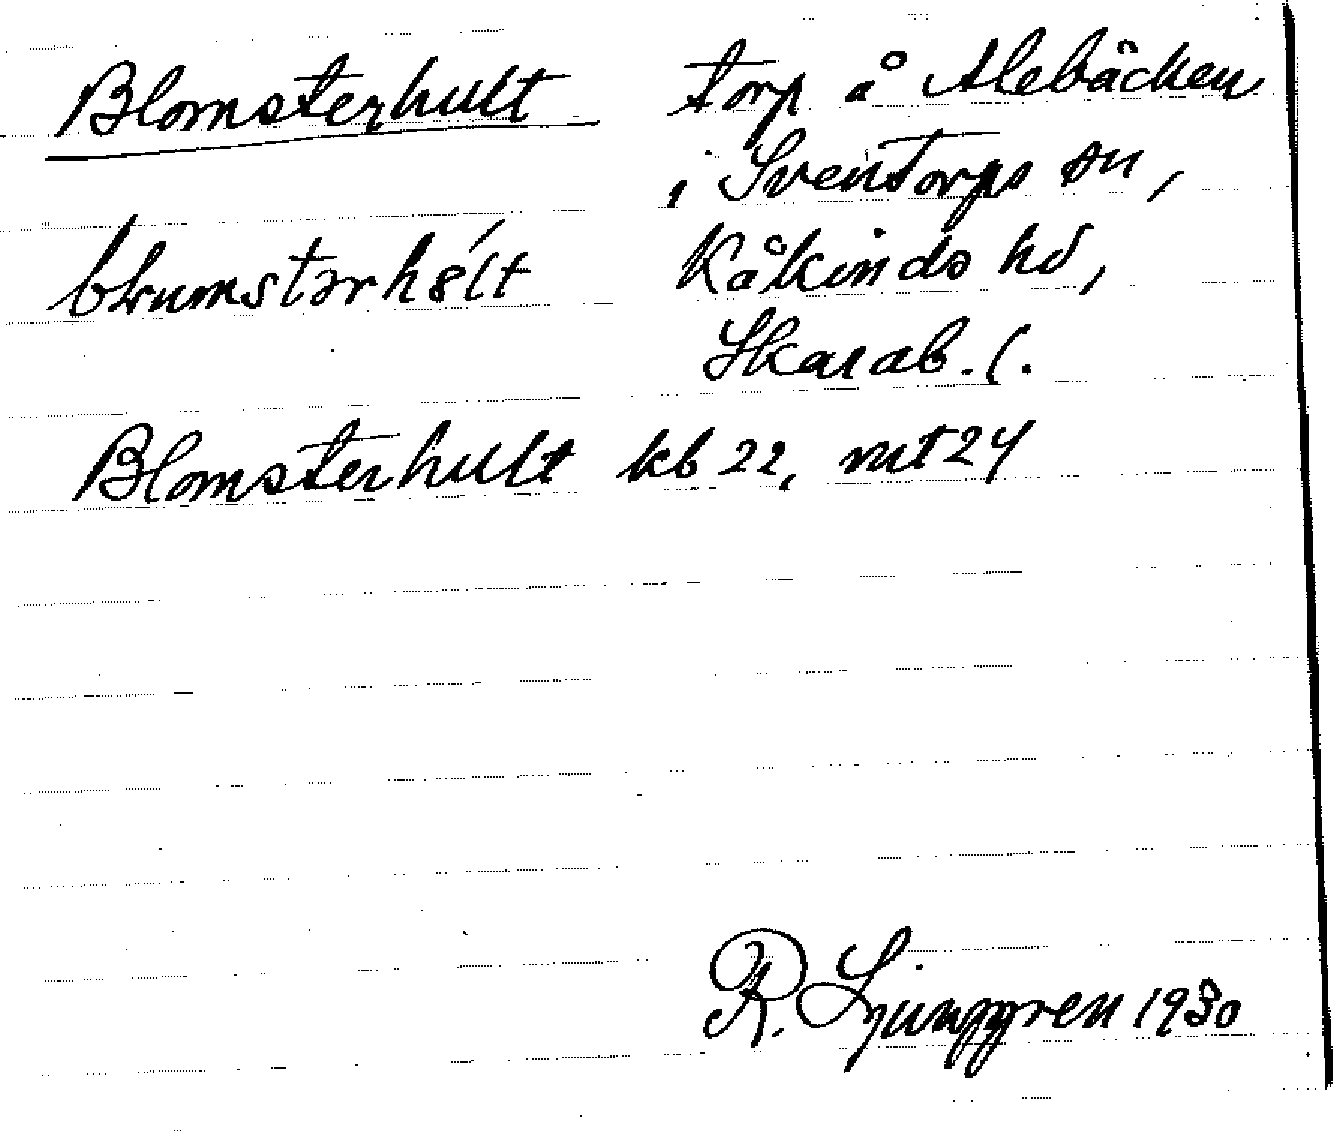 Blomsterhult torp å Alebäcken
i Sventorps sn,
Kåkinds hd,
Skarab. l.
Blomsterhult kb 22, mt 24
R. Ljunggren 1930